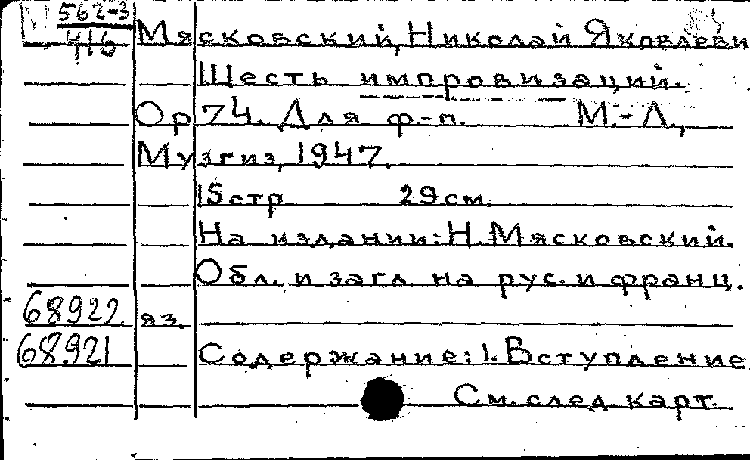 М 562-3
416
Мясковский, Николай Яковлеви
Шесть импровизаций.
Op 74. Для ф-п. М.-Л.,
Музгиз, 1947.
15стр 29см.
На издании: Н. Мясковский.
Обл. и загл. на рус. и франц.
68922 яз.
68921 Содержание: 1. Вступление
См. след карт.